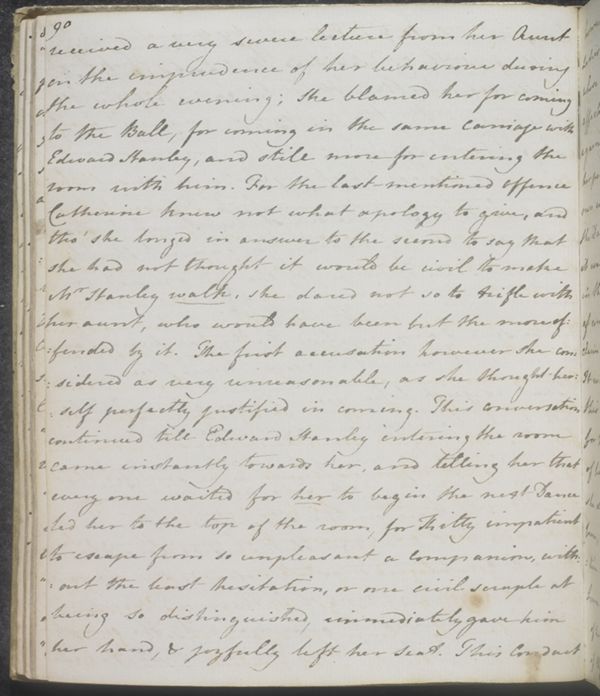 90
received a very severe lecture from her Aunt
on the imprudence of her behaviour during
the whole evening; she blamed her for coming
to the Ball, for coming in the same Carriage with
Edward Stanley, and still more for entering the
room with him. For the last-mentioned offence
Catherine knew not what apology to give, and
tho' she longed in answer to the second to say that
she had not thought it would be civil to make
Mr Stanley walk, she dared not so to trifle with
her aunt, who would have been but the more of:
:fended by it. The first accusation however she con
:sidered as very unreasonable, as she thought her:
:self perfectly justified in coming. This conversation
continued till Edward Stanley entering the room
came instantly towards her, and telling her that
every one waited for her to begin the next Dance
led her to the top of the room, for Kitty impatient
to escape from so unpleasant a Companion, with
:out the least hesitation, or one civil scruple at
being so distinguished, immediately gave him
her hand, & joyfully left her seat. This Conduct